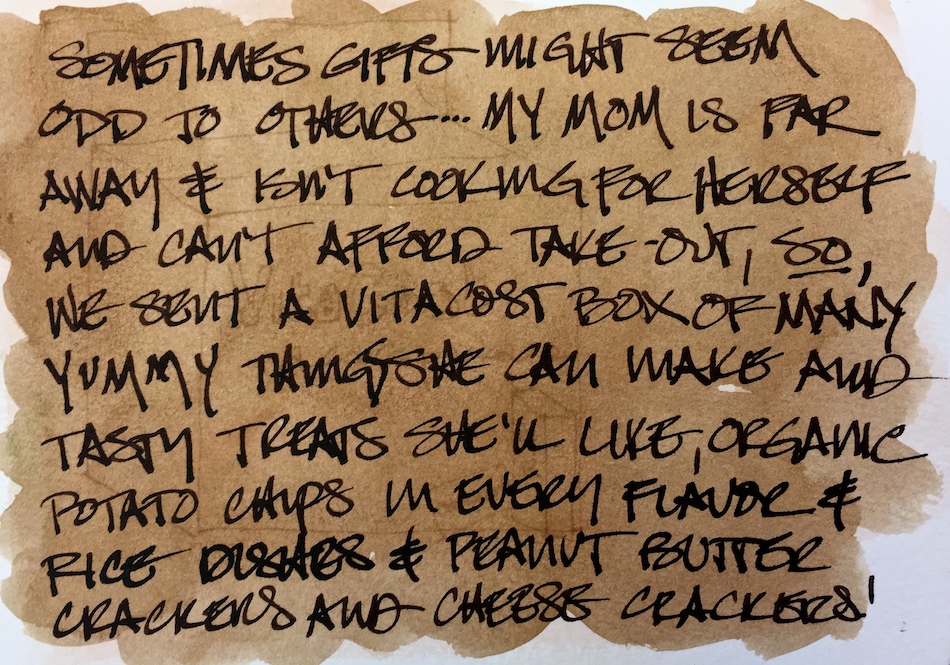 SOMETIMES GIFTS MIGHT SEEM
ODD TO OTHERS... MY MOM IS FAR
AWAY & ISN'T COOKING FOR HERSELF
AND CAN'T AFFORD TAKE-OUT, SO,
WE SENT A VITACOST BOX OF MANY
YUMMY THINGS SHE CAN MAKE AND
TASTY TREATS SHE'LL LIKE, ORGANIC
POTATO CHIPS IN EVERY FLAVOR &
RICE DISHES & PEANUT BUTTER
CRACKERS AND CHEESE CRACKERS!